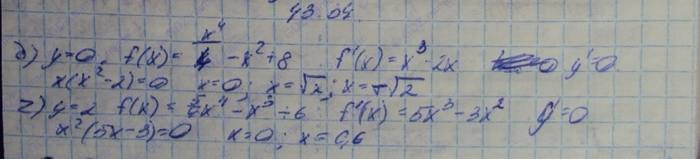 43.04
д) y=0; f(x) = x⁴/4 - x² + 8 f'(x) = x³ - 2x 0 y'=0
x(x²-2)=0 x=0; x=√2; x=-√2
г) y=2 f(x) = 5/4x⁴ - x³ + 6 f'(x) = 5x³ - 3x² y'=0
x²(5x-3)=0 x=0; x=0,6